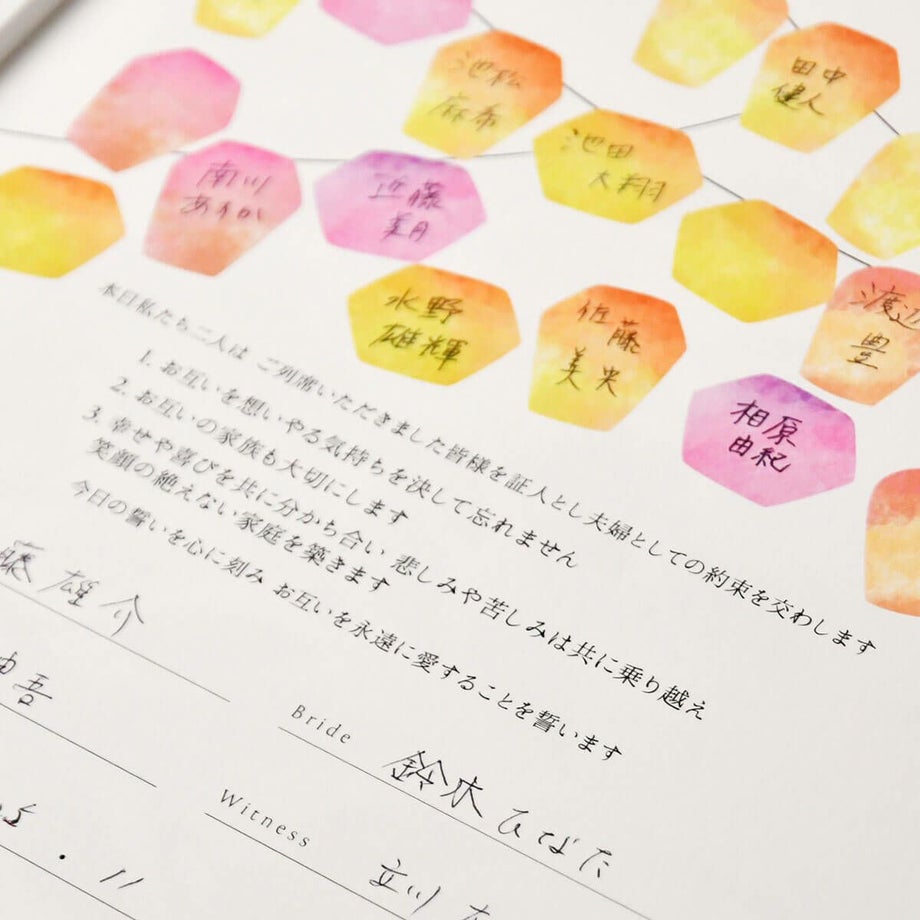 池松
麻希
田中
健人
池田
大翔
南川
あすか
近藤
美月
水野
雄輝
佐藤
美央
渡辺
豊
相原
由紀
本日私たち二人は ご列席いただきました皆様を証人とし 夫婦としての約束を交わします
1. お互いを想いやる気持ちを決して忘れません
2. お互いの家族も大切にします
3. 幸せや喜びを共に分かち合い 悲しみや苦しみは共に乗り越え
笑顔の絶えない家庭を築きます
今日の誓いを心に刻み お互いを永遠に愛することを誓います
藤 雄介
吾
Bride 鈴木 ひなた
Witness 立川
. 11